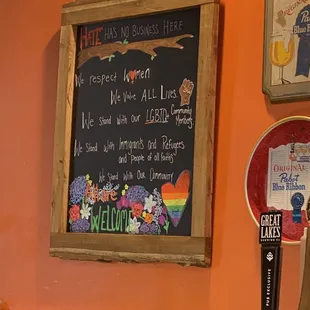 HATE HAS NO BUSINESS HERE
We respect Women
We Value ALL Lives
We Stand With Our LGBTQ+
Community Members
We Stand With Immigrants and Refugees
and People of all Faiths
We Stand With Our Community
Everyone is
WELCOME
ORIGINAL
Pabst
Blue Ribbon
GREAT
LAKES
BREWING CO.
PUB EXCLUSIVE